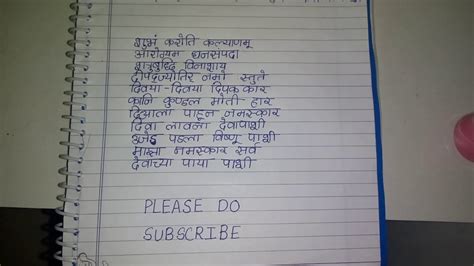 शुभं करोति कल्याणम्
आरोग्यम धनसंपदा
शत्रुबुद्धि विनाशाय
दीपंदज्योतिर नमो स्तुते
दिवया-दिवया दिपक कार
कानि कुण्डल मोती हार
दिव्याला पाहून नमस्कार
दिवा लावला देवापाशी
उजेड पडला विष्णू पाशी
माझा नमस्कार सर्व
देवाच्या पाया पाशी
PLEASE DO
SUBSCRIBE